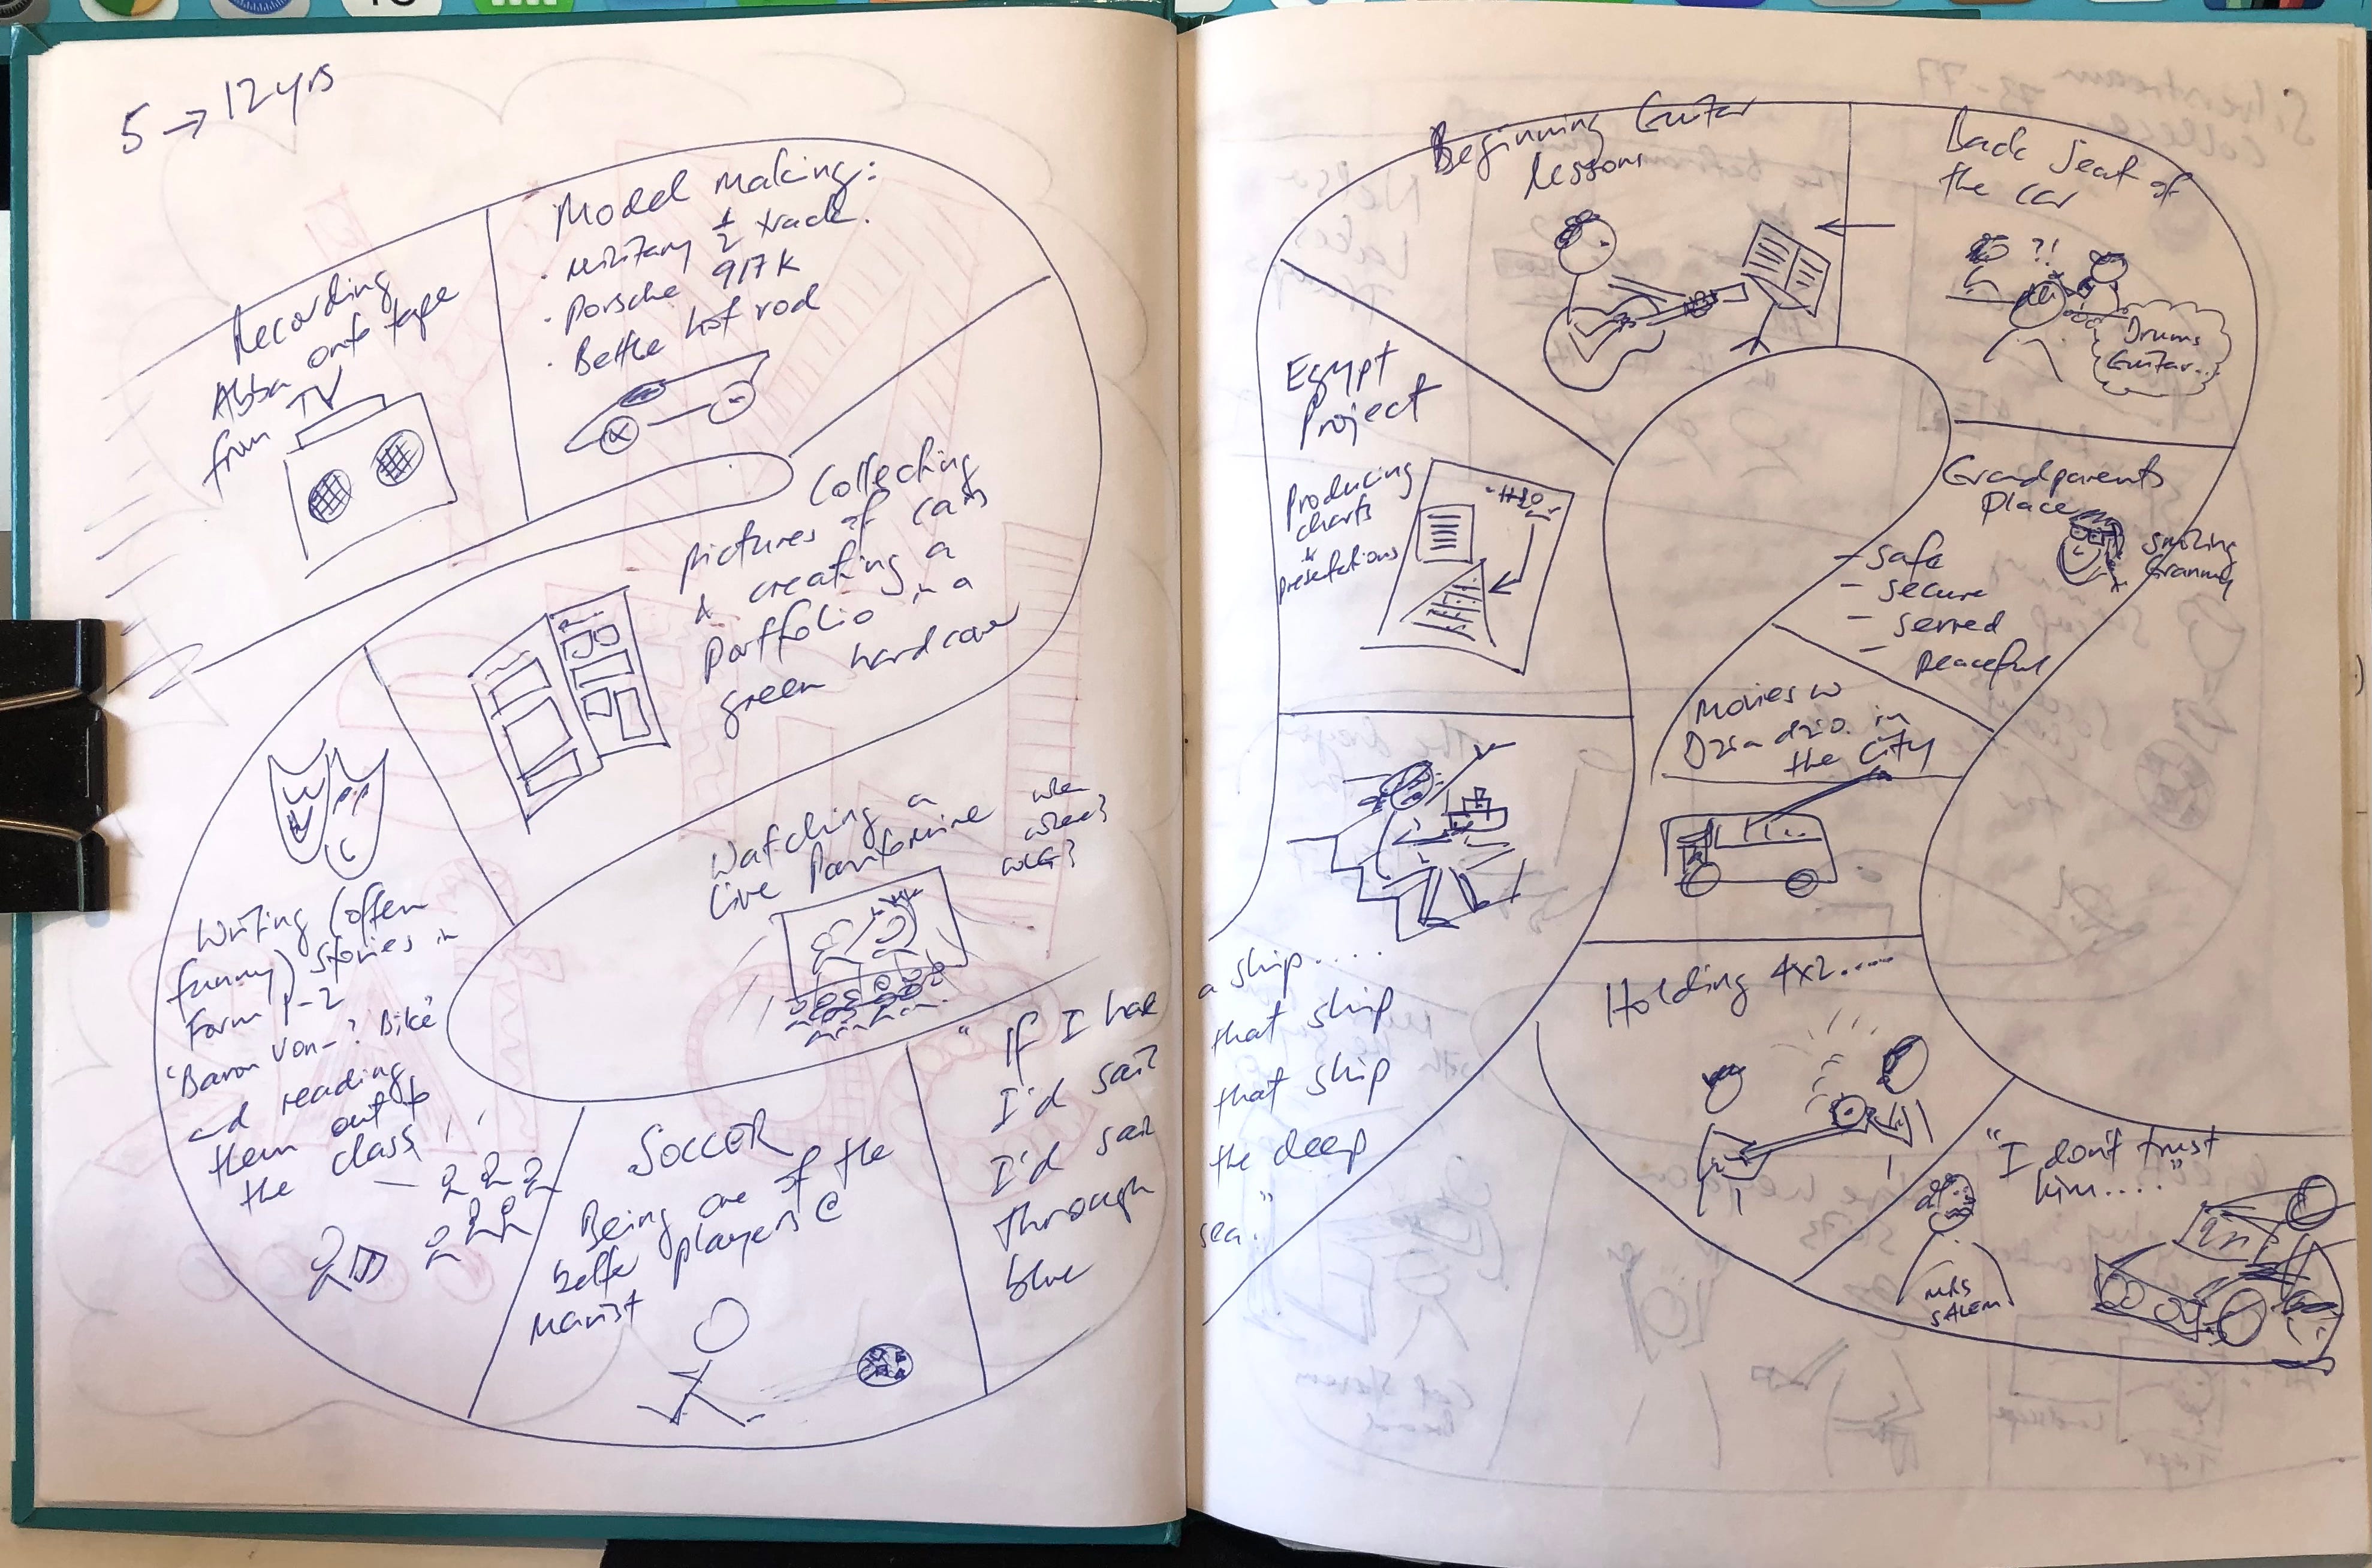 5 → 12 yrs
Recording
Abba onto tape
from TV
Model Making:
· Military 1/2 track.
· Porsche 917K
· Beetle hot rod
Collecting
pictures of cars
& creating a
portfolio in a
green hardcover
Watching a
live Pantomime
when
where?
Writing (often
funny) stories in
Form 1-2
'Baron Von-? Bike'
and reading
them out to
the class
SOCCER
Being one of the
better players @
Marist
"If I had
I'd sail
I'd sail
through
blue
a ship....
that ship
that ship
the deep
sea."
Egypt
Project
Producing
charts
&
presentations
Beginning Guitar
lessons
Back Seat of
the car
?!
Drums
Guitar..
Grandparents
Place
smiling
Granny
- safe
- secure
- served
- peaceful
Movies w
Dziadzio in
the City
Holding 4x2.....
"I don't trust
him...."
MRS
SALEM